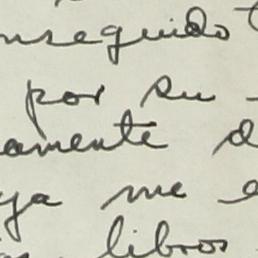 nseguido
por su
amente
ya me
libros